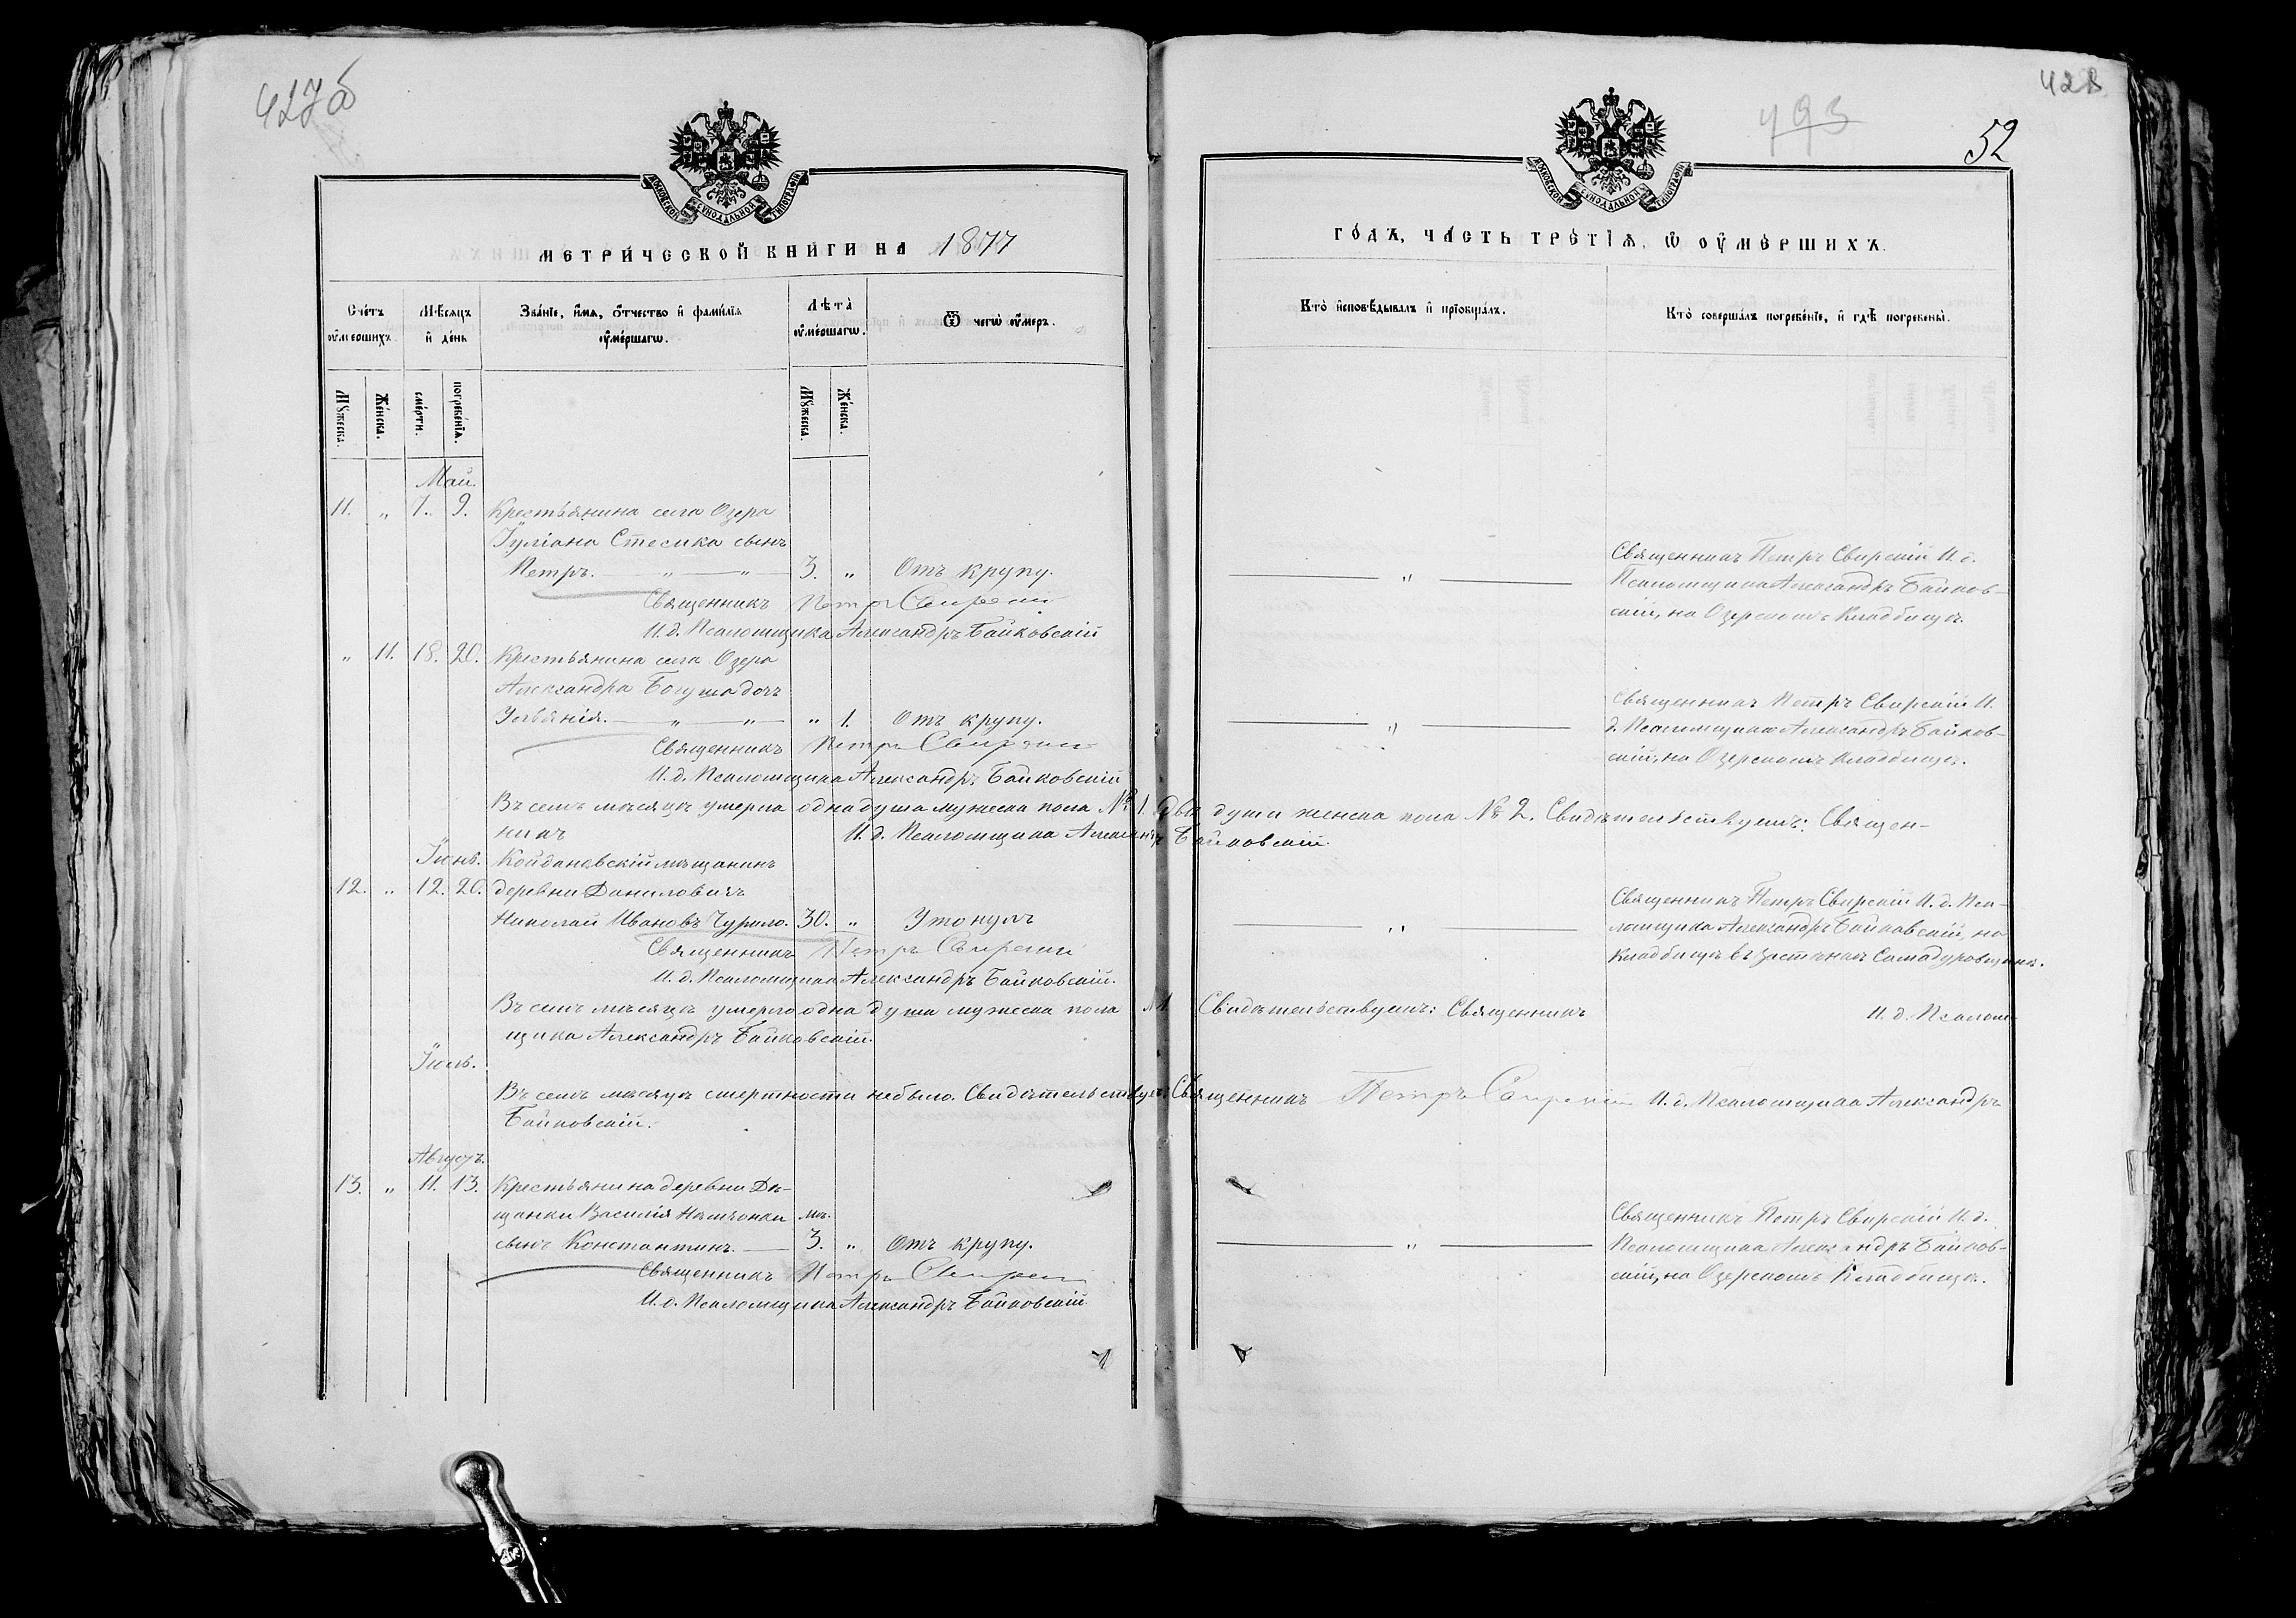 427б
МЕТРИ́ЧЕСКОЙ КНИ́ГИ НА 1877
Сче́тъ оу҆ме́ршихъ.
Мѣ́сяцъ и҆ де́нь
Зва́нїе, и҆́мѧ, ѻ҆́тчество и҆ фами́лїѧ оу҆ме́ршагѡ.
Лѣта̀ оу҆ме́ршагѡ.
Ѿ чегѡ̀ оу҆́меръ.
Мꙋ́жеска.
Же́нска.
сме́рти.
погребе́нїѧ.
Мꙋ́жеска.
Же́нска.
Май.
11. „ 7. 9. Крестьянина села Озера
Іуліана Стесика сынъ
Петръ. — „ — „ — 3. „ Отъ крупу.
Священникъ Петръ Свирскій
И. д. Псаломщика Александръ Байковскій
„ 11. 18. 20. Крестьянина села Озера
Александра Богуша дочь
Ульянія. — „ — „ — „ 1. Отъ крупу.
Священникъ Петръ Свирскій
И. д. Псаломщика Александръ Байковскій
Въ семъ мѣсяцѣ умерла одна душа мужеска пола № 1. двѣ души женска пола № 2. Свидѣтельствуемъ: Священ-
никъ И. д. Псаломщика Александръ Байковскій.
Іюнь. Койдановскій мѣщанинъ
12. „ 12. 20. деревни Даниловичъ
Николай Ивановъ Чурило. 30. „ Утонулъ
Священникъ Петръ Свирскій
И. д. Псаломщика Александръ Байковскій.
Въ семъ мѣсяцѣ умерло одна душа мужеска пола № 1. Свидѣтельствуемъ: Священникъ И. д. Псалом-
щика Александръ Байковскій.
Іюль.
Въ семъ мѣсяцѣ смертности небыло. Свидѣтельствуемъ: Священникъ Петръ Свирскій И. д. Псаломщика Александръ
Байковскій.
Августъ.
13. „ 11. 13. Крестьянина деревни Ди-
щанки Василія мѣ.
сынъ Константинъ. — 3. „ Отъ крупу.
Священникъ Петръ Свирскій
И. д. Псаломщика Александръ Байковскій.
428
493
52
ГО́ДЪ, ЧА́СТЬ ТРЕ́ТЇѦ, Ѡ҆ ОУ҆МЕ́РШИХЪ.
Кто̀ и҆сповѣ́дывалъ и҆ прїѡбща́лъ.
Кто̀ соверша́лъ погребе́нїе, и҆ гдѣ̀ погребены̀.
— „ —
Священникъ Петръ Свирскій И. д.
Псаломщика Александръ Байков-
скій, на Озерскомъ Кладбищѣ.
— „ —
Священникъ Петръ Свирскій И.
д. Псаломщика Александръ Байков-
скій, на Озерскомъ Кладбищѣ.
— „ —
Священникъ Петръ Свирскій И. д. Пса-
ломщика Александръ Байковскій, на
Кладбищѣ въ застѣнкѣ Самадуровщинѣ.
— „ —
Священникъ Петръ Свирскій И. д.
Псаломщика Александръ Байков-
скій, на Озерскомъ Кладбищѣ.